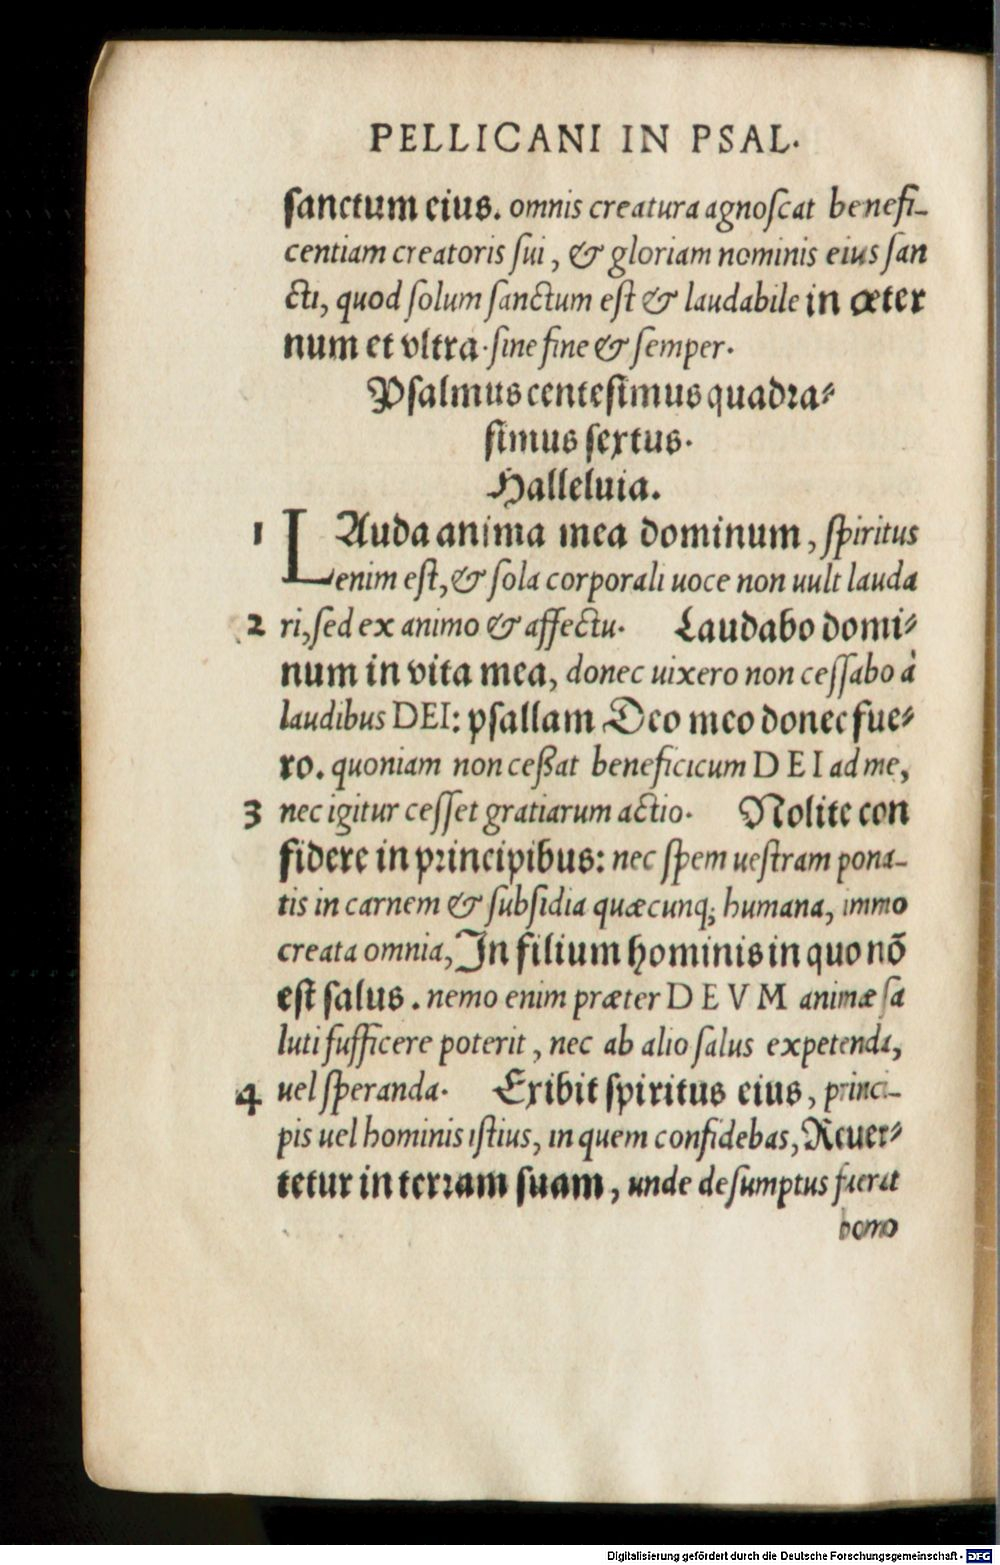 PELLICANI IN PSAL.
ſanctum eius. omnis creatura agnoſcat benefi-
centiam creatoris ſui, & gloriam nominis eius ſan
cti, quod ſolum ſanctum eſt & laudabile in æter
num et vltra. ſine fine & ſemper.
Pſalmus centeſimus quadra-
ſimus ſextus.
Halleluia.
1 LAuda anima mea dominum, ſpiritus
enim eſt, & ſola corporali uoce non uult lauda
2 ri, ſed ex animo & affectu. Laudabo domi-
num in vita mea, donec uixero non ceſſabo à
laudibus DEI: pſallam Deo meo donec fue-
ro. quoniam non ceßat beneficicum DEI ad me,
3 nec igitur ceſſet gratiarum actio. Nolite con
fidere in principibus: nec ſpem ueſtram pona-
tis in carnem & ſubſidia quæcunq; humana, immo
creata omnia, In filium hominis in quo nō
eſt ſalus. nemo enim præter DEVM animæ ſa
luti ſufficere poterit, nec ab alio ſalus expetenda,
4 uel ſperanda. Exibit ſpiritus eius, princi-
pis uel hominis iſtius, in quem confidebas, Reuer-
tetur in terram ſuam, unde deſumptus fuerat
homo
Digitalisierung gefördert durch die Deutsche Forschungsgemeinschaft - DFG